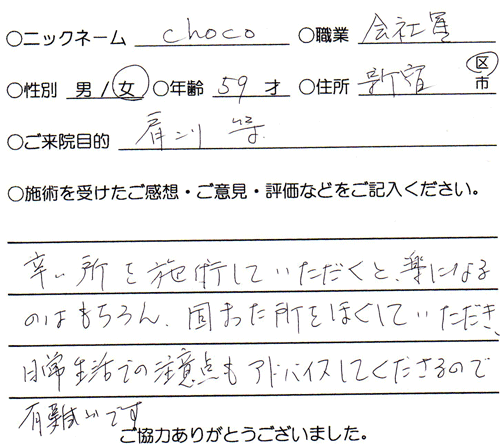 ○ニックネーム choco ○職業 会社員
○性別 男/女 ○年齢 59 才 ○住所 新宿 区市
○ご来院目的 肩こり 等
○施術を受けたご感想・ご意見・評価などをご記入ください。
辛い所を施術していただくと、楽になる
のはもちろん、固まった所をほぐしていただき、
日常生活での注意点もアドバイスしてくださるので
有難いです
ご協力ありがとうございました。